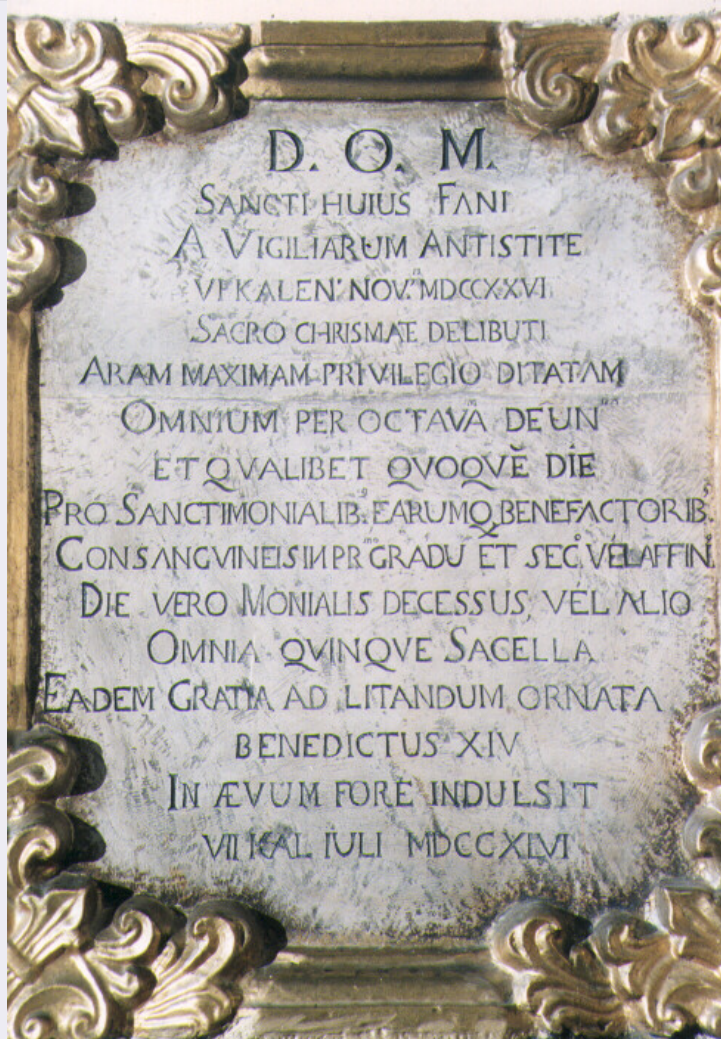 D. O. M.
SANCTI HUIUS FANI
A VIGILIARUM ANTISTITE
VI KALEN: NOV. MDCCXXVI
SACRO CHRISMATE DELIBUTI
ARAM MAXIMAM PRIVILEGIO DITATAM
OMNIUM PER OCTAVA DEUN
ET QVALIBET QVOQVĚ DIE
PRO SANCTIMONIALIB. EARUMQ. BENEFACTORIB.
CONSANGVINEIS IN PR GRADU ET SEC. VEL AFFIN.
DIE VERO MONIALIS DECESSUS, VEL ALIO
OMNIA QVINQVE SACELLA
EADEM GRATIA AD LITANDUM ORNATA
BENEDICTUS XIV
IN ÆVUM FORE INDULSIT
VII KAL IULI MDCCXLVI